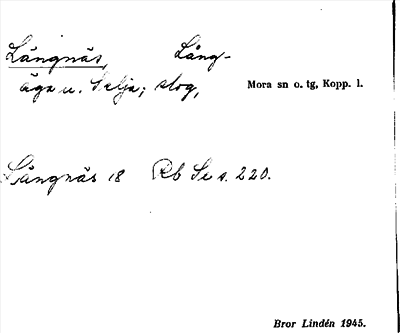 Långnäs, Lång-
äga u. Selja; skog, Mora sn o. tg, Kopp. l.
Långnäs 18 Rb Se s. 220.
Bror Lindén 1945.